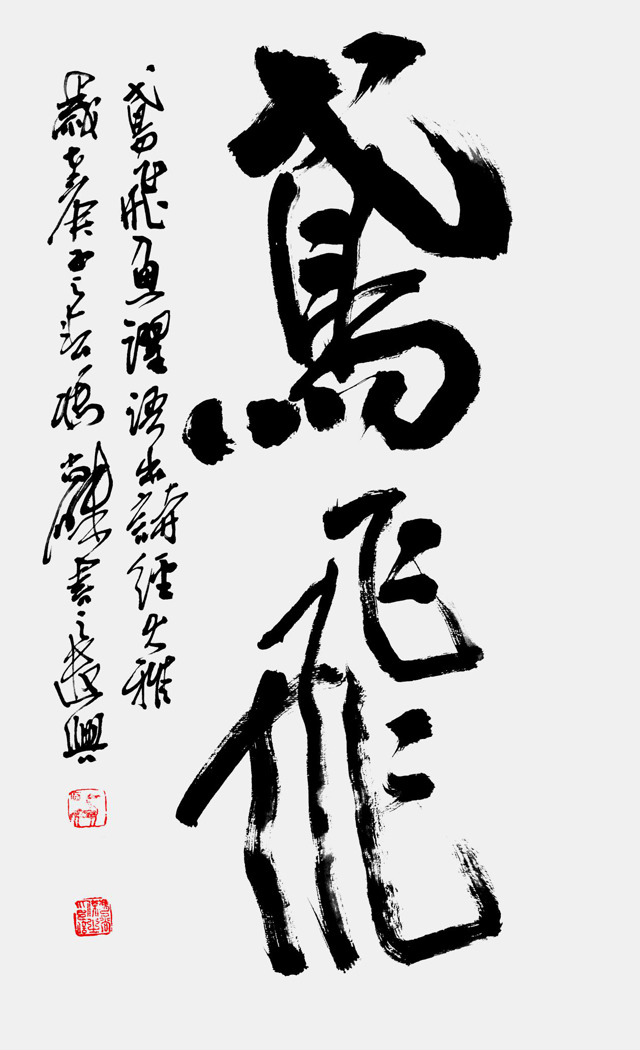 鳶飛
鳶飛魚躍語出詩經大雅
歲在庚子之書之遣興